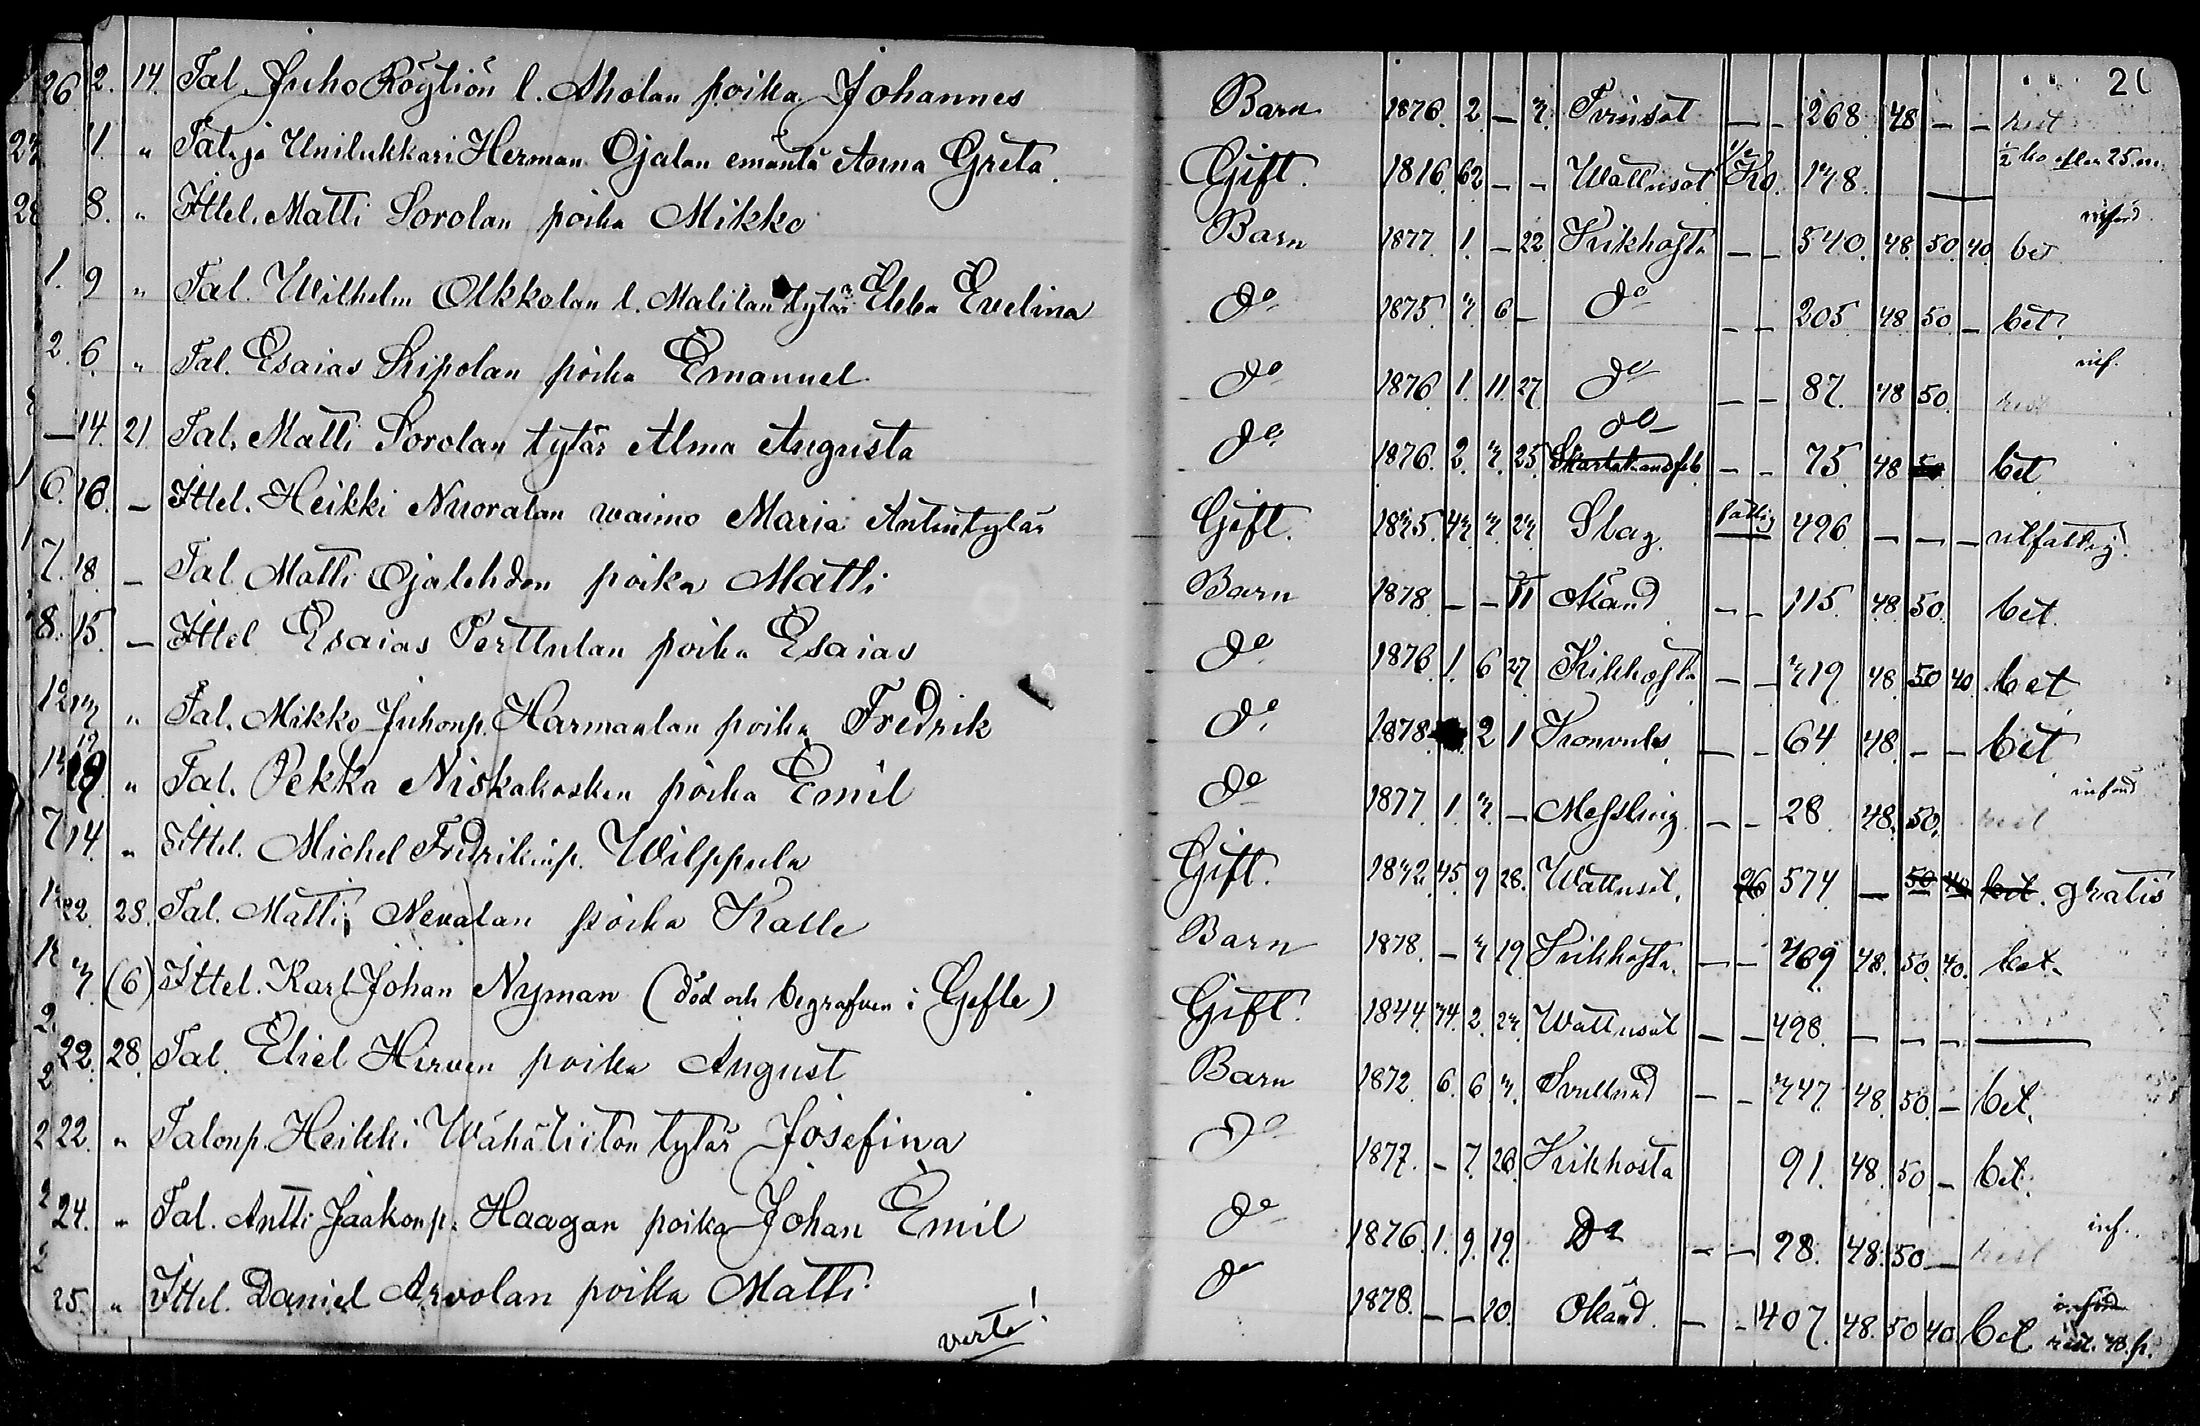 20
26 2. 14. Tal. Juho Röytiön l. Aholan poika Johannes Barn 1876. 2 — 7. — — 268. 48 — — rest
27 11. " Tal. ja Unilukkari Herman Ojalan emäntä Anna Greta. Gift. 1816. 62 — — Wattusot 1/2 Ko. 178. — 1/2 ko efter 25 m.
28 8. " Ittel. Matti Sorolan poika Mikko Barn 1877. 1 — 22 Kikhosta — — 540. 48. 50. 40. bet införd
1. 9 " Tal. Wilhelm Olkkolan l. Malilan tytär Ebba Evelina do 1875. 7. 6 — do — — 205 48 50. — bet.
2. 6. " Tal. Esaias Sipolan poika Emanuel do 1876. 1. 11. 27. do — — 87. 48 50. rest inf.
— 14. 21. Tal. Matti Sorolan tytär Alma Augusta do 1876. 2. 7. 25 do — — 75 48 50 bet
6. 16. — Ittel. Heikki Nuoralan waimo Maria Antintytär Gift. 1835. 42. 7. 27. Slag. fattig 496. — — — utfattig.
7. 18. — Tal. Matti Ojalehdon poika Matti Barn 1878. — — 11 Okänd — — 115. 48. 50. bet.
8. 15. — Ittel. Esaias Perttulan poika Esaias do 1876. 1. 6 27. Kikhosta — — 719 48. 50 40. bet
12 17 " Tal. Mikko Juhonp. Harmaalan poika Fredrik do 1878. 2 1 Kronvuls. — — 64. 48. — — bet
19 " Tal. Pekka Niskakosken poika Emil do 1877. 1. 7. — Messling — — 28. 48. 50. rest införd
7 14. " Ittel. Michel Fredrikinp. Wilppula Gift. 1832. 45. 9 28. Wattusot. 26 574 — 50 40 bet. gratis
22. 28. Tal. Matti Nevalan poika Kalle Barn 1878. — 7 19. Kikhosta. — — 769. 48. 50. 40. bet.
7. (6) Ittel. Karl Johan Nyman (död och begrafven i Gefle) Gift. 1844. 34. 2. 27. Wattusot — — 498. — — — —
22. 28. Tal. Eliel Hirven poika August Barn 1872. 6. 6 7. Svullnad — — 747. 48. 50. — bet.
22. " Talonp. Heikki Wähäliiton tytär Josefina Do 1877. — 7. 26. Kikhosta 91. 48. 50 — bet.
24. " Tal. Antti Jaakonp. Haagan poika Johan Emil do 1876. 1. 9. 19. Do — — 98. 48. 50 — rest inf.
25. " Ittel. Daniel Arvolan poika Matti do 1878. — — 10. Okänd. — — 407. 48. 50 40. bet införd rest. 40. p.
verte!